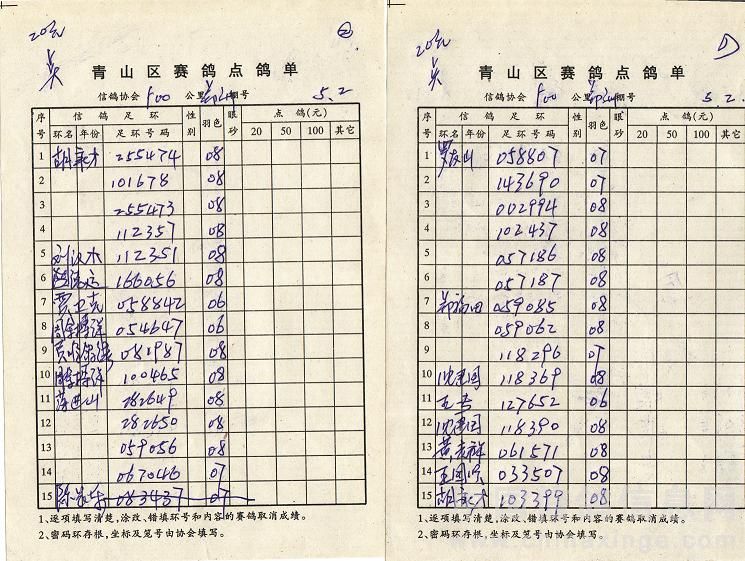 20元
②
青山区赛鸽点鸽单
信鸽协会 500 公里 棚号 5.2
序号 信鸽足环 性别 羽色 眼砂 点鸽(元)
环名 年份 足环号码 20 50 100 其它
1 255474 08
2 101678 08
3 255473 08
4 112357 08
5 112351 08
6 166056 08
7 贾卫克 058842 06
8 054647 08
9 081987 08
10 100465 08
11 282649 08
12 282650 08
13 059056 08
14 067046 07
15 083437 07
1、逐项填写清楚,涂改、错填环号和内容的赛鸽取消成绩。
2、密码环存根,坐标及笼号由协会填写。
20元
①
青山区赛鸽点鸽单
信鸽协会 500 公里 棚号 5.2.
序号 信鸽足环 性别 羽色 眼砂 点鸽(元)
环名 年份 足环号码 20 50 100 其它
1 058807 07
2 143690 07
3 002994 08
4 102437 08
5 057186 08
6 057187 08
7 郑福田 059085 08
8 059062 08
9 118296 07
10 沈建国 118369 08
11 王吉 127652 06
12 沈建国 118390 08
13 黄志祥 061571 08
14 033507 08
15 103399 08
1、逐项填写清楚,涂改、错填环号和内容的赛鸽取消成绩。
2、密码环存根,坐标及笼号由协会填写。